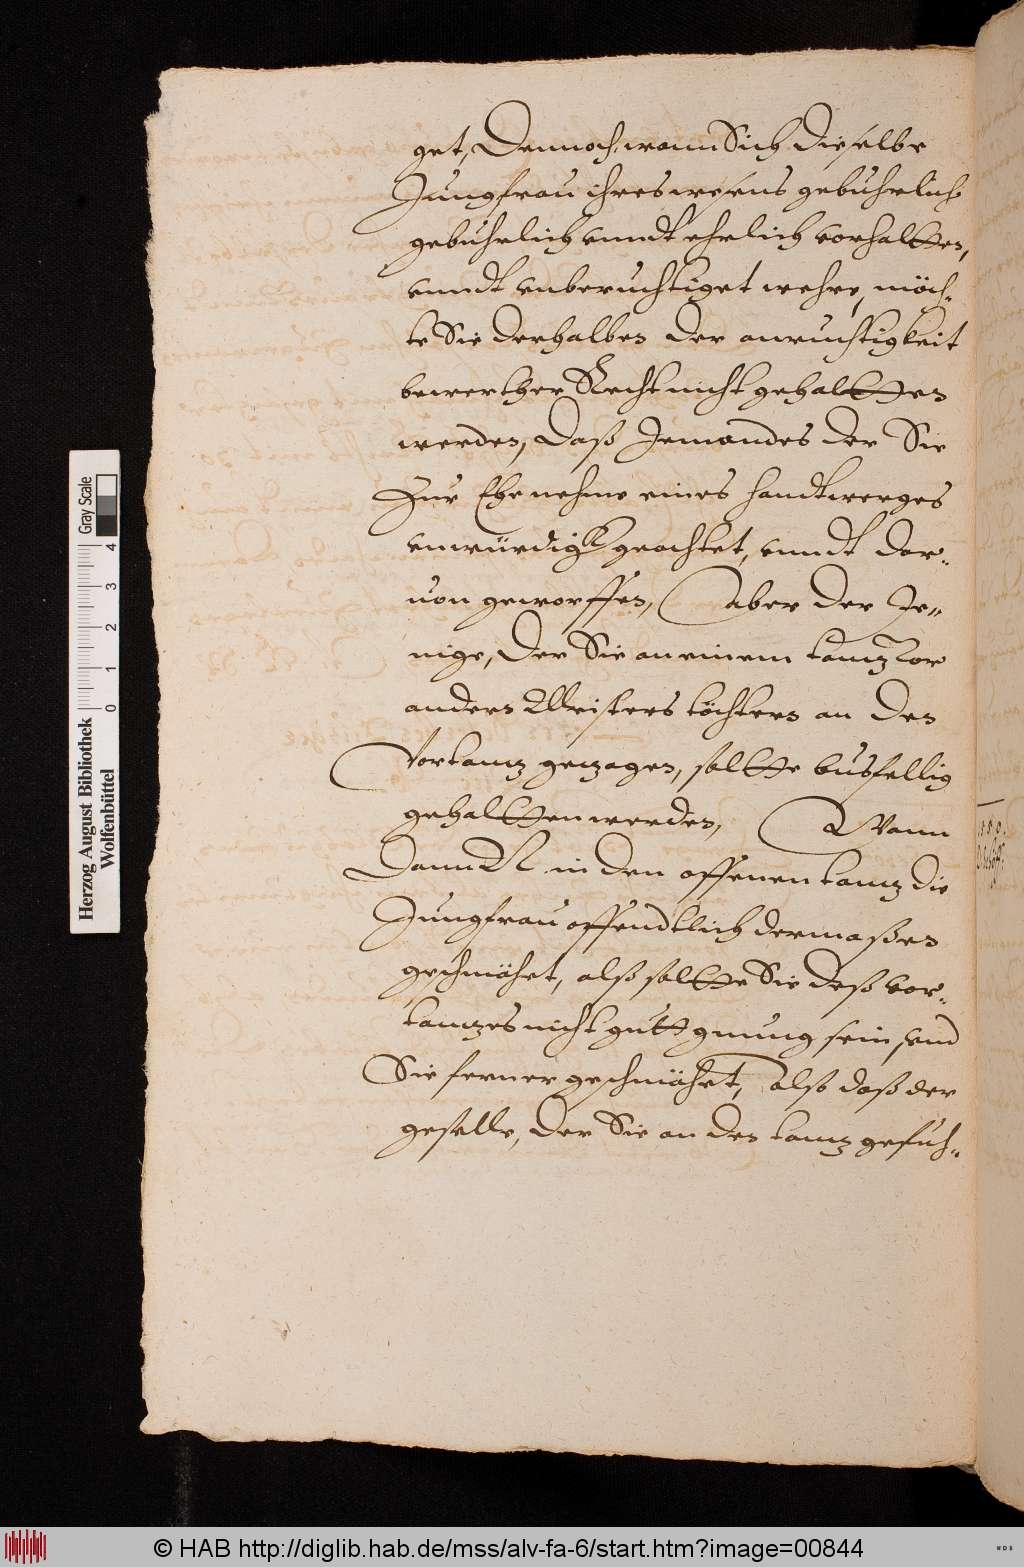 get, Dennoch, wann Sich Dieselbe
Jungfrau ihres wesens gebuhrlich
gebuhrlich vnndt ehrlich vorhaltten,
vnndt vnberuchtiget wehre, möch-
te Sie derhalben der anruchtigkeit
bewerther Recht nicht gehaltten
werden, Daß Jemandes der Sie
Zur Ehe nehme eines handtwerges
vnwürdigk geachtet, vnndt dar-
uon geworffen, aber der Je-
nige, Der Sie an einem tantz vor
andern Meisters töchtern an den
Vortantz gezogen, soltte busfellig
gehaltten werden, Wann
Dann N in den offenen tantz die
Jungfrau offendtlich dermaßen
geschmähet, alß soltte Sie deß vor-
tantzes nicht gutt gnung sein, vnd
Sie ferner geschmähet, alß daß der
geselle, Der Sie an den tantz gefuh-
Herzog August Bibliothek
Wolfenbüttel
Gray Scale
0 1 2 3 4
© HAB http://diglib.hab.de/mss/alv-fa-6/start.htm?image=00844